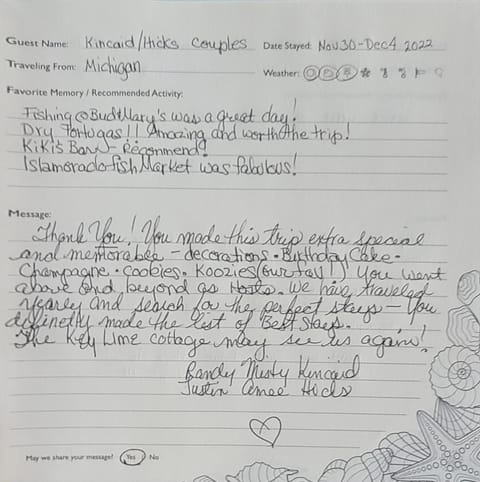 Guest Name: Kincaid/Hicks Couples Date Stayed: Nov 30-Dec 4 2022
Traveling From: Michigan Weather:
Favorite Memory / Recommended Activity:
Fishing @ Bud+Mary's was a great day!
Dry Tortugas!! Amazing and worth the trip!
Kiki's Bar - Recommend!
Islamorada Fish Market was fabulous!
Message:
Thank You! You made this trip extra special
and memorable - decorations · Birthday Cake ·
Champagne · cookies · Koozies (our fav!!) You went
above and beyond as Hosts. We have traveled
yearly and search for the perfect stays - You
definetly made the list of Best Stays.
The Key Lime cottage may see us again!
Randy Misty Kincaid
Justin Aimee Hicks
May we share your message? Yes No